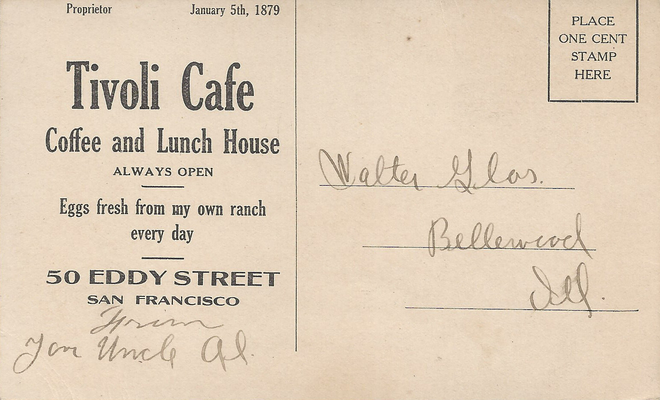 Proprietor January 5th, 1879
Tivoli Cafe
Coffee and Lunch House
ALWAYS OPEN
Eggs fresh from my own ranch
every day
50 EDDY STREET
SAN FRANCISCO
From
Your Uncle Al.
PLACE
ONE CENT
STAMP
HERE
Walter Glos.
Bellewood
Ill.